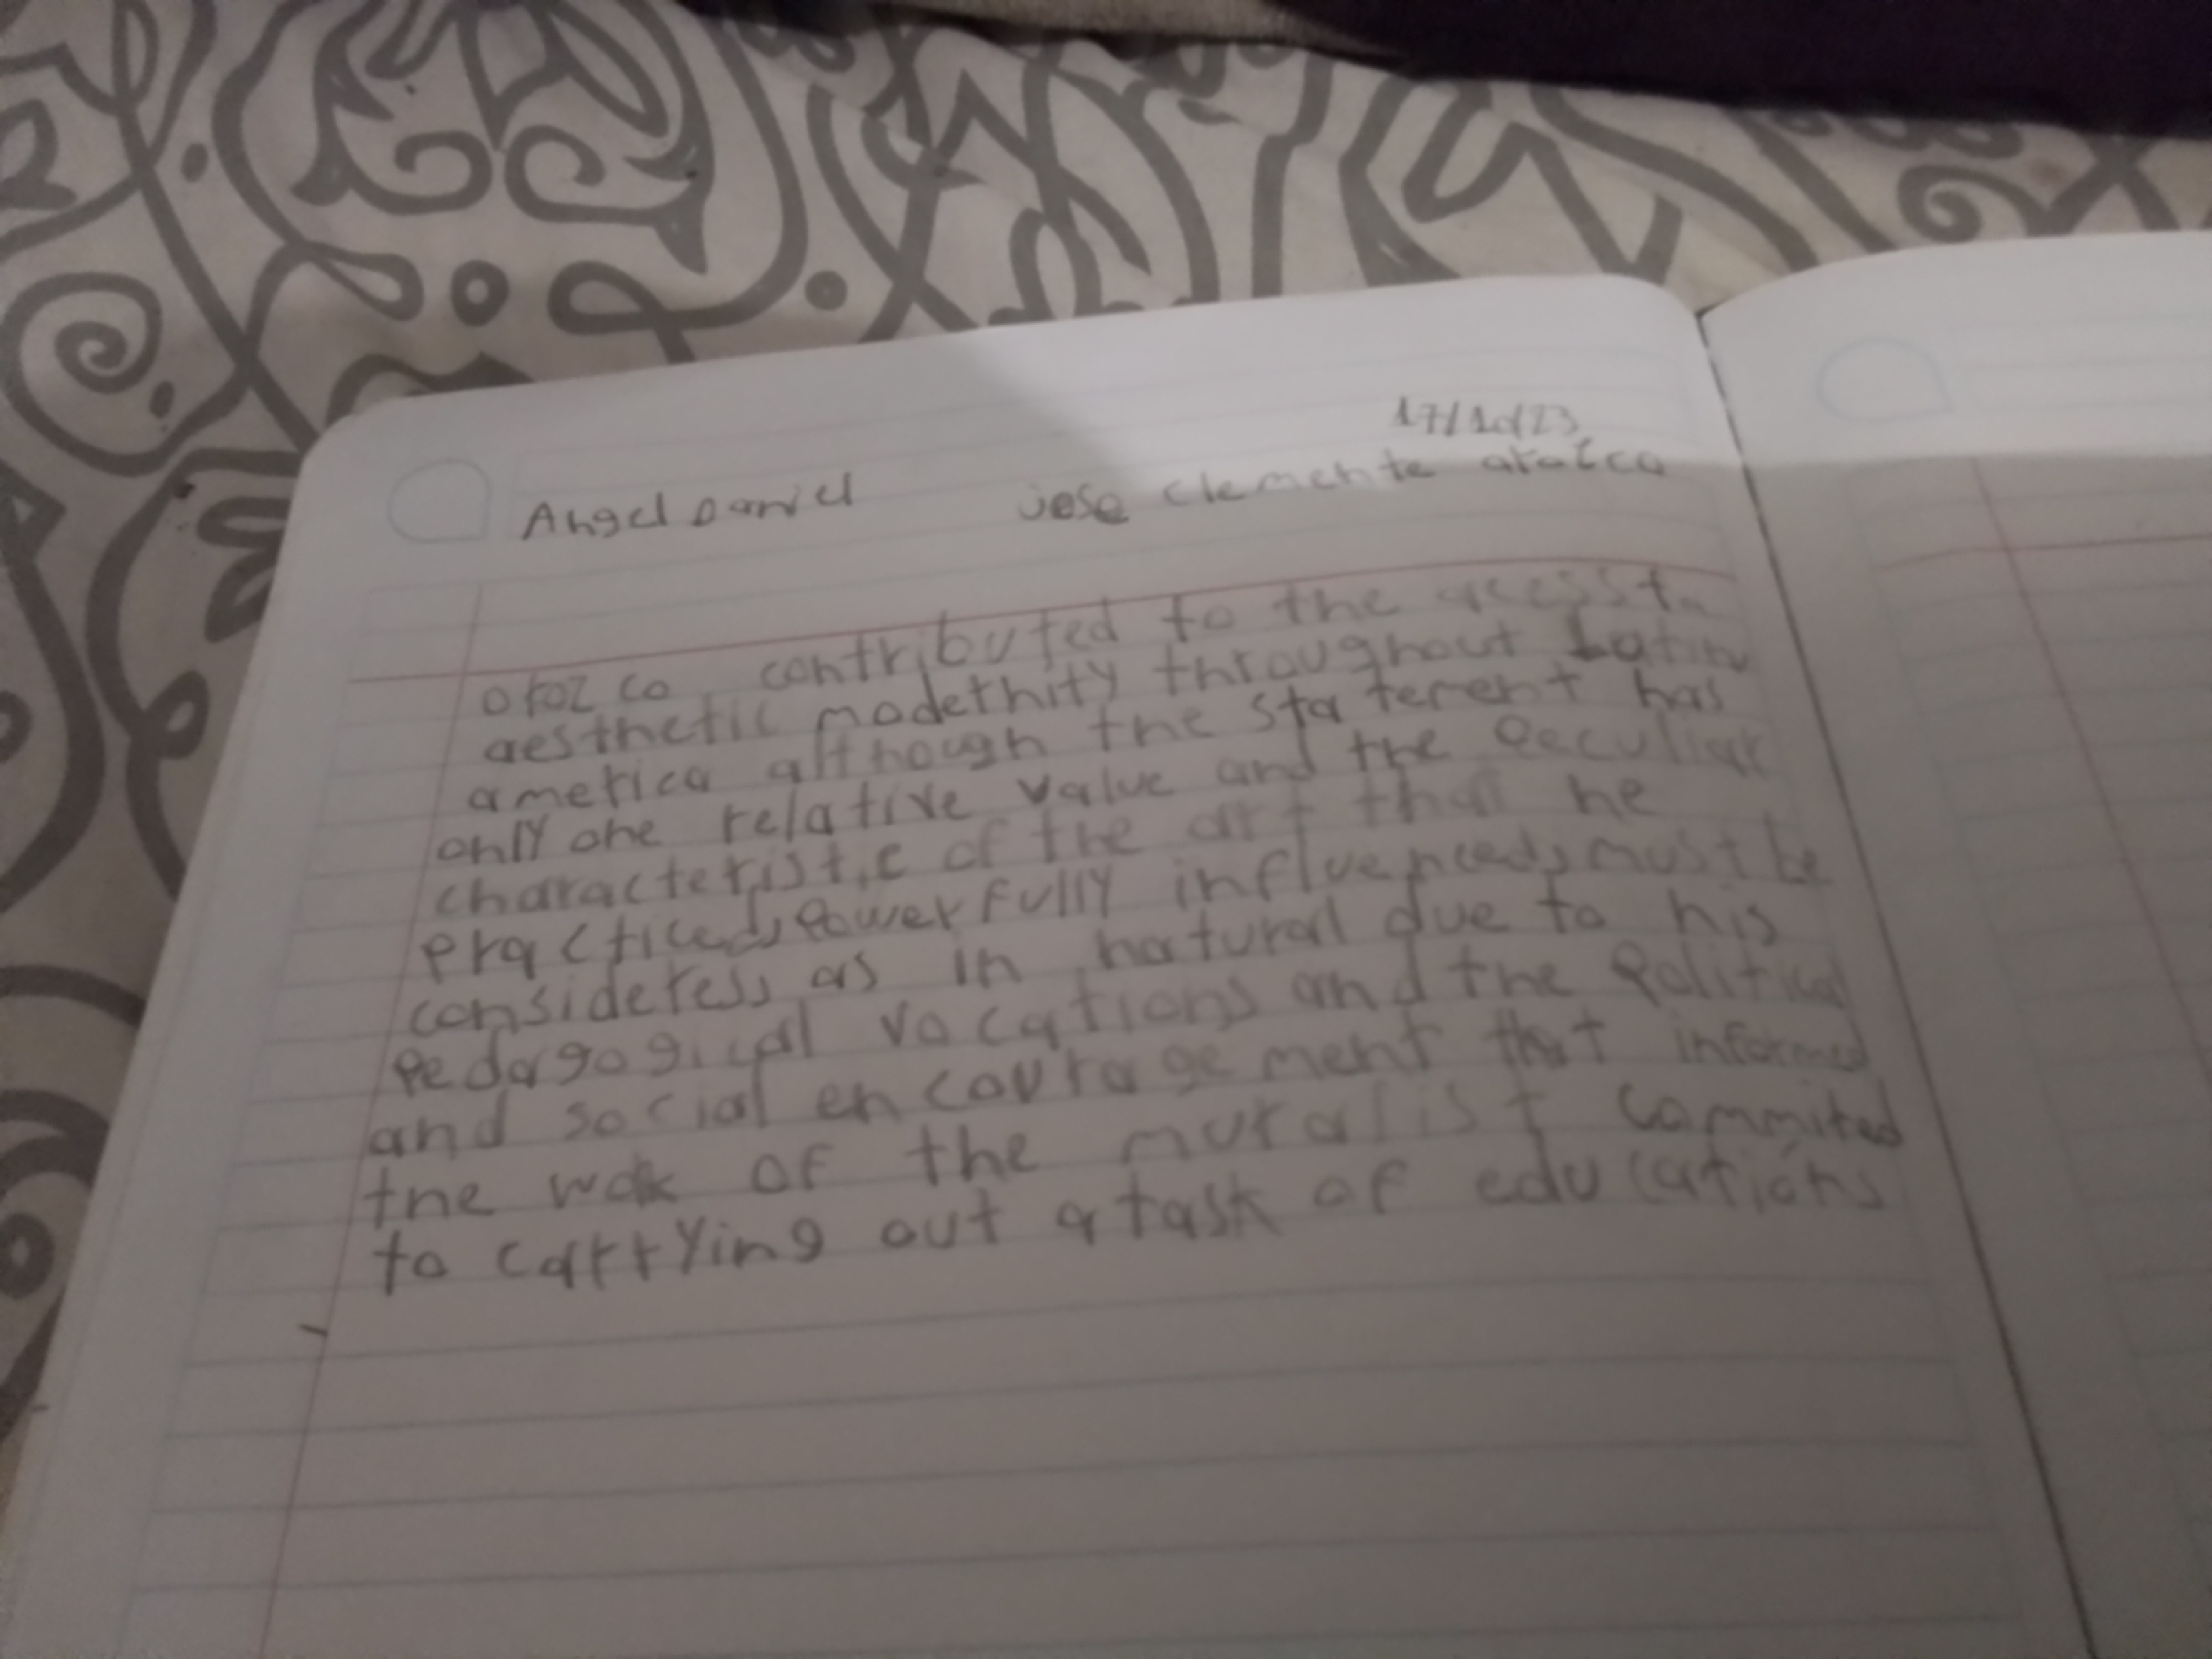 17/10/23
Angel Daniel jose clemente orozco
orozco contributed to the
aesthetic modernity throughout Latin
america although the staterent has
only one relative value and the peculiar
characteristic of the art that he
practiced, powerfully influenced, must be
consideress as in natural due to his
pedagogical vocations and the political
and social encouragement that informed
the work of the muralist commited
to carrying out a task of educations